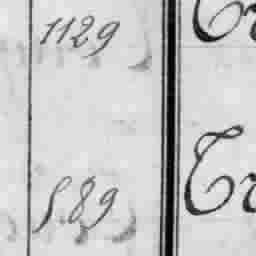 1129
Tr
589
Tr